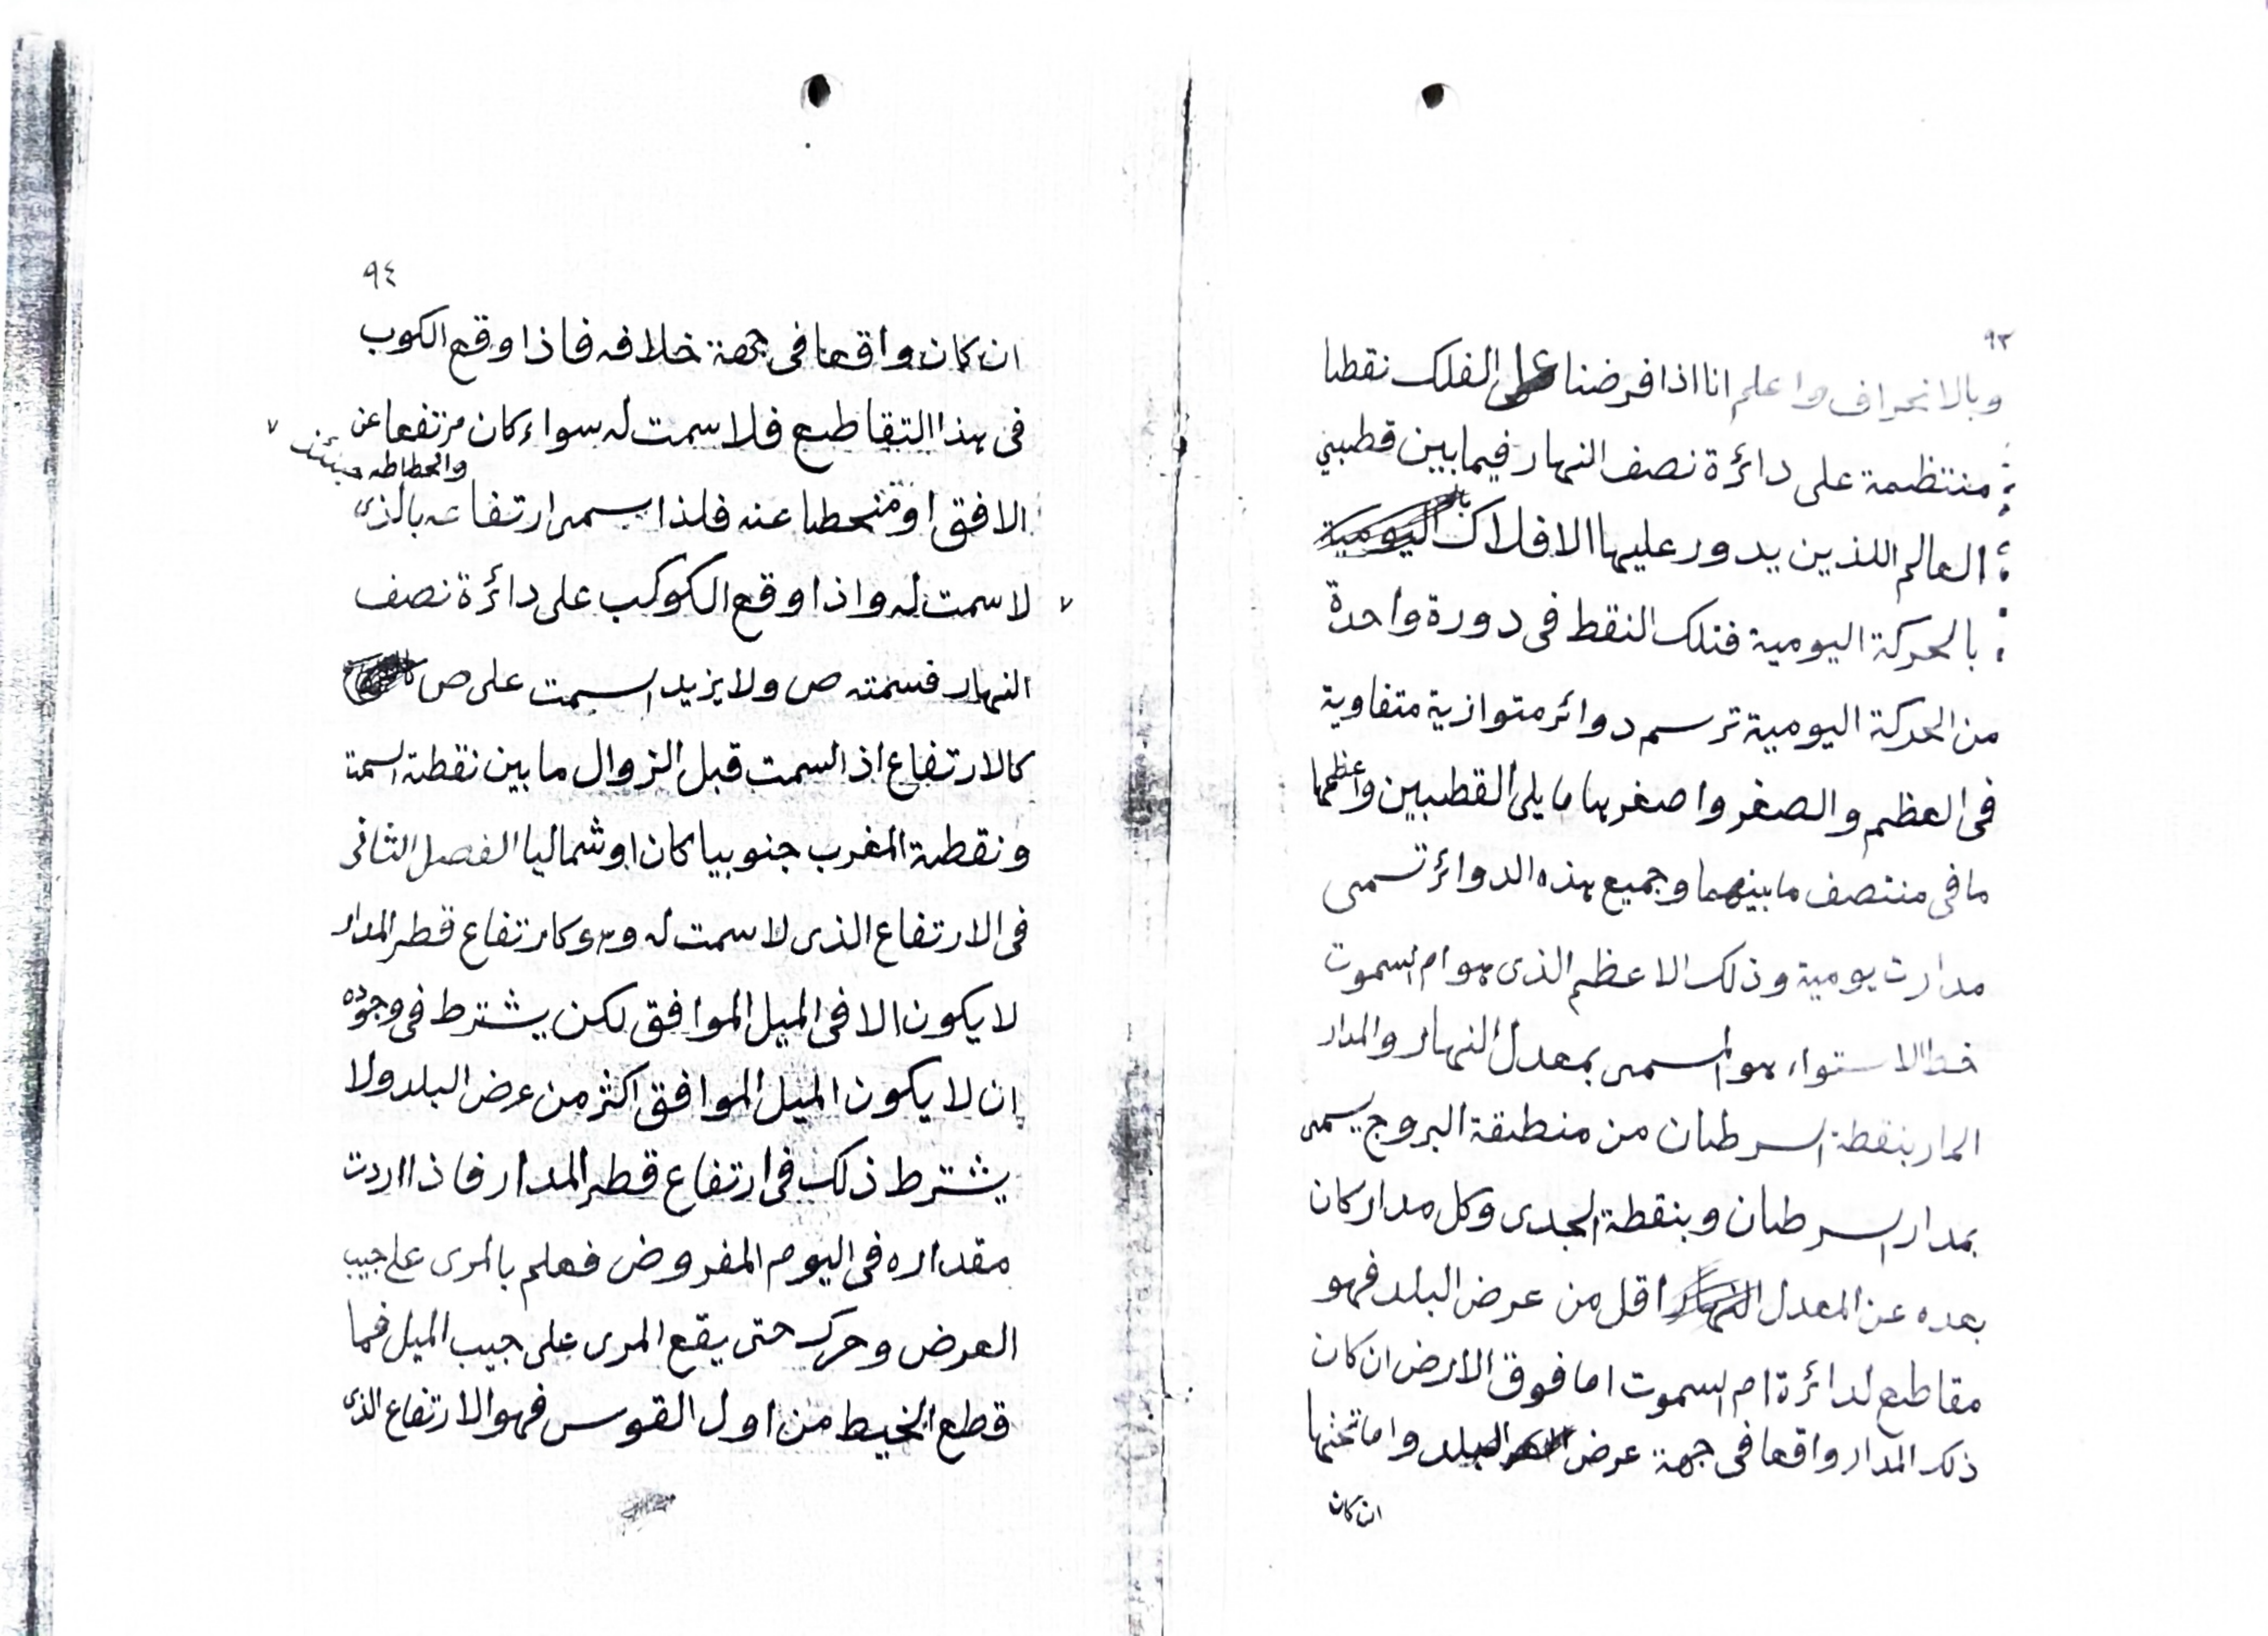 ٩٣
وبالانحراف واعلم انا اذا فرضنا على الفلك نقطا
منتظمة على دائرة نصف النهار فيما بين قطبي
العالم اللذين يدور عليها الافلاك
بالحركة اليومية فتلك النقط فى دورة واحدة
من الحركة اليومية ترسم دوائر متوازية متفاوية
فى العظم والصغر واصغرها ما يلى القطبين واعظمها
ما فى منتصف ما بينهما وجميع هذه الدوائر تسمى
مدارت يومية وذلك الاعظم الذى هو ام السموت
خط الاستواء هو المسمى بمعدل النهار والمدار
المار بنقطة السرطان من منطقة البروج يسمى
بمدار السرطان وبنقطة الجدى وكل مدار كان
بعده عن المعدل النهار اقل من عرض البلد فهو
مقاطع لدائرة ام السموت اما فوق الارض ان كان
ذلك المدار واقعا فى جهة عرض البلد واما تحتها
ان كان
٩٤
ان كان واقعا فى جهة خلافه فاذا وقع الكوب
فى هذا التقاطع فلا سمت له سواء كان مرتفعا عن
وانحطاطه حينئذ
الافق او منحطا عنه فلذا سمى ارتفاعه بالذى
لا سمت له واذا وقع الكوكب على دائرة نصف
النهار فسمته ص ولا يزيد السمت على ص
كالارتفاع اذ السمت قبل الزوال ما بين نقطة السمت
ونقطة المغرب جنوبيا كان او شماليا الفصل الثانى
فى الارتفاع الذى لا سمت له وهو كارتفاع قطر المدار
لا يكون الا فى الميل الموافق لكن يشترط فى وجوده
ان لا يكون الميل الموافق اكثر من عرض البلد ولا
يشترط ذلك فى ارتفاع قطر المدار فاذا اردت
مقداره فى اليوم المفروض فعلم بالمرى على جيب
العرض وحرك حتى يقع المرى على جيب الميل فما
قطع الخيط من اول القوس فهو الارتفاع الذى